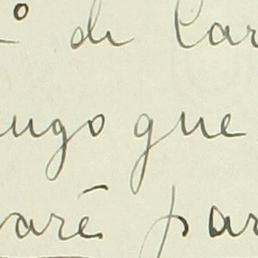 º de Car
ungo que
varé par